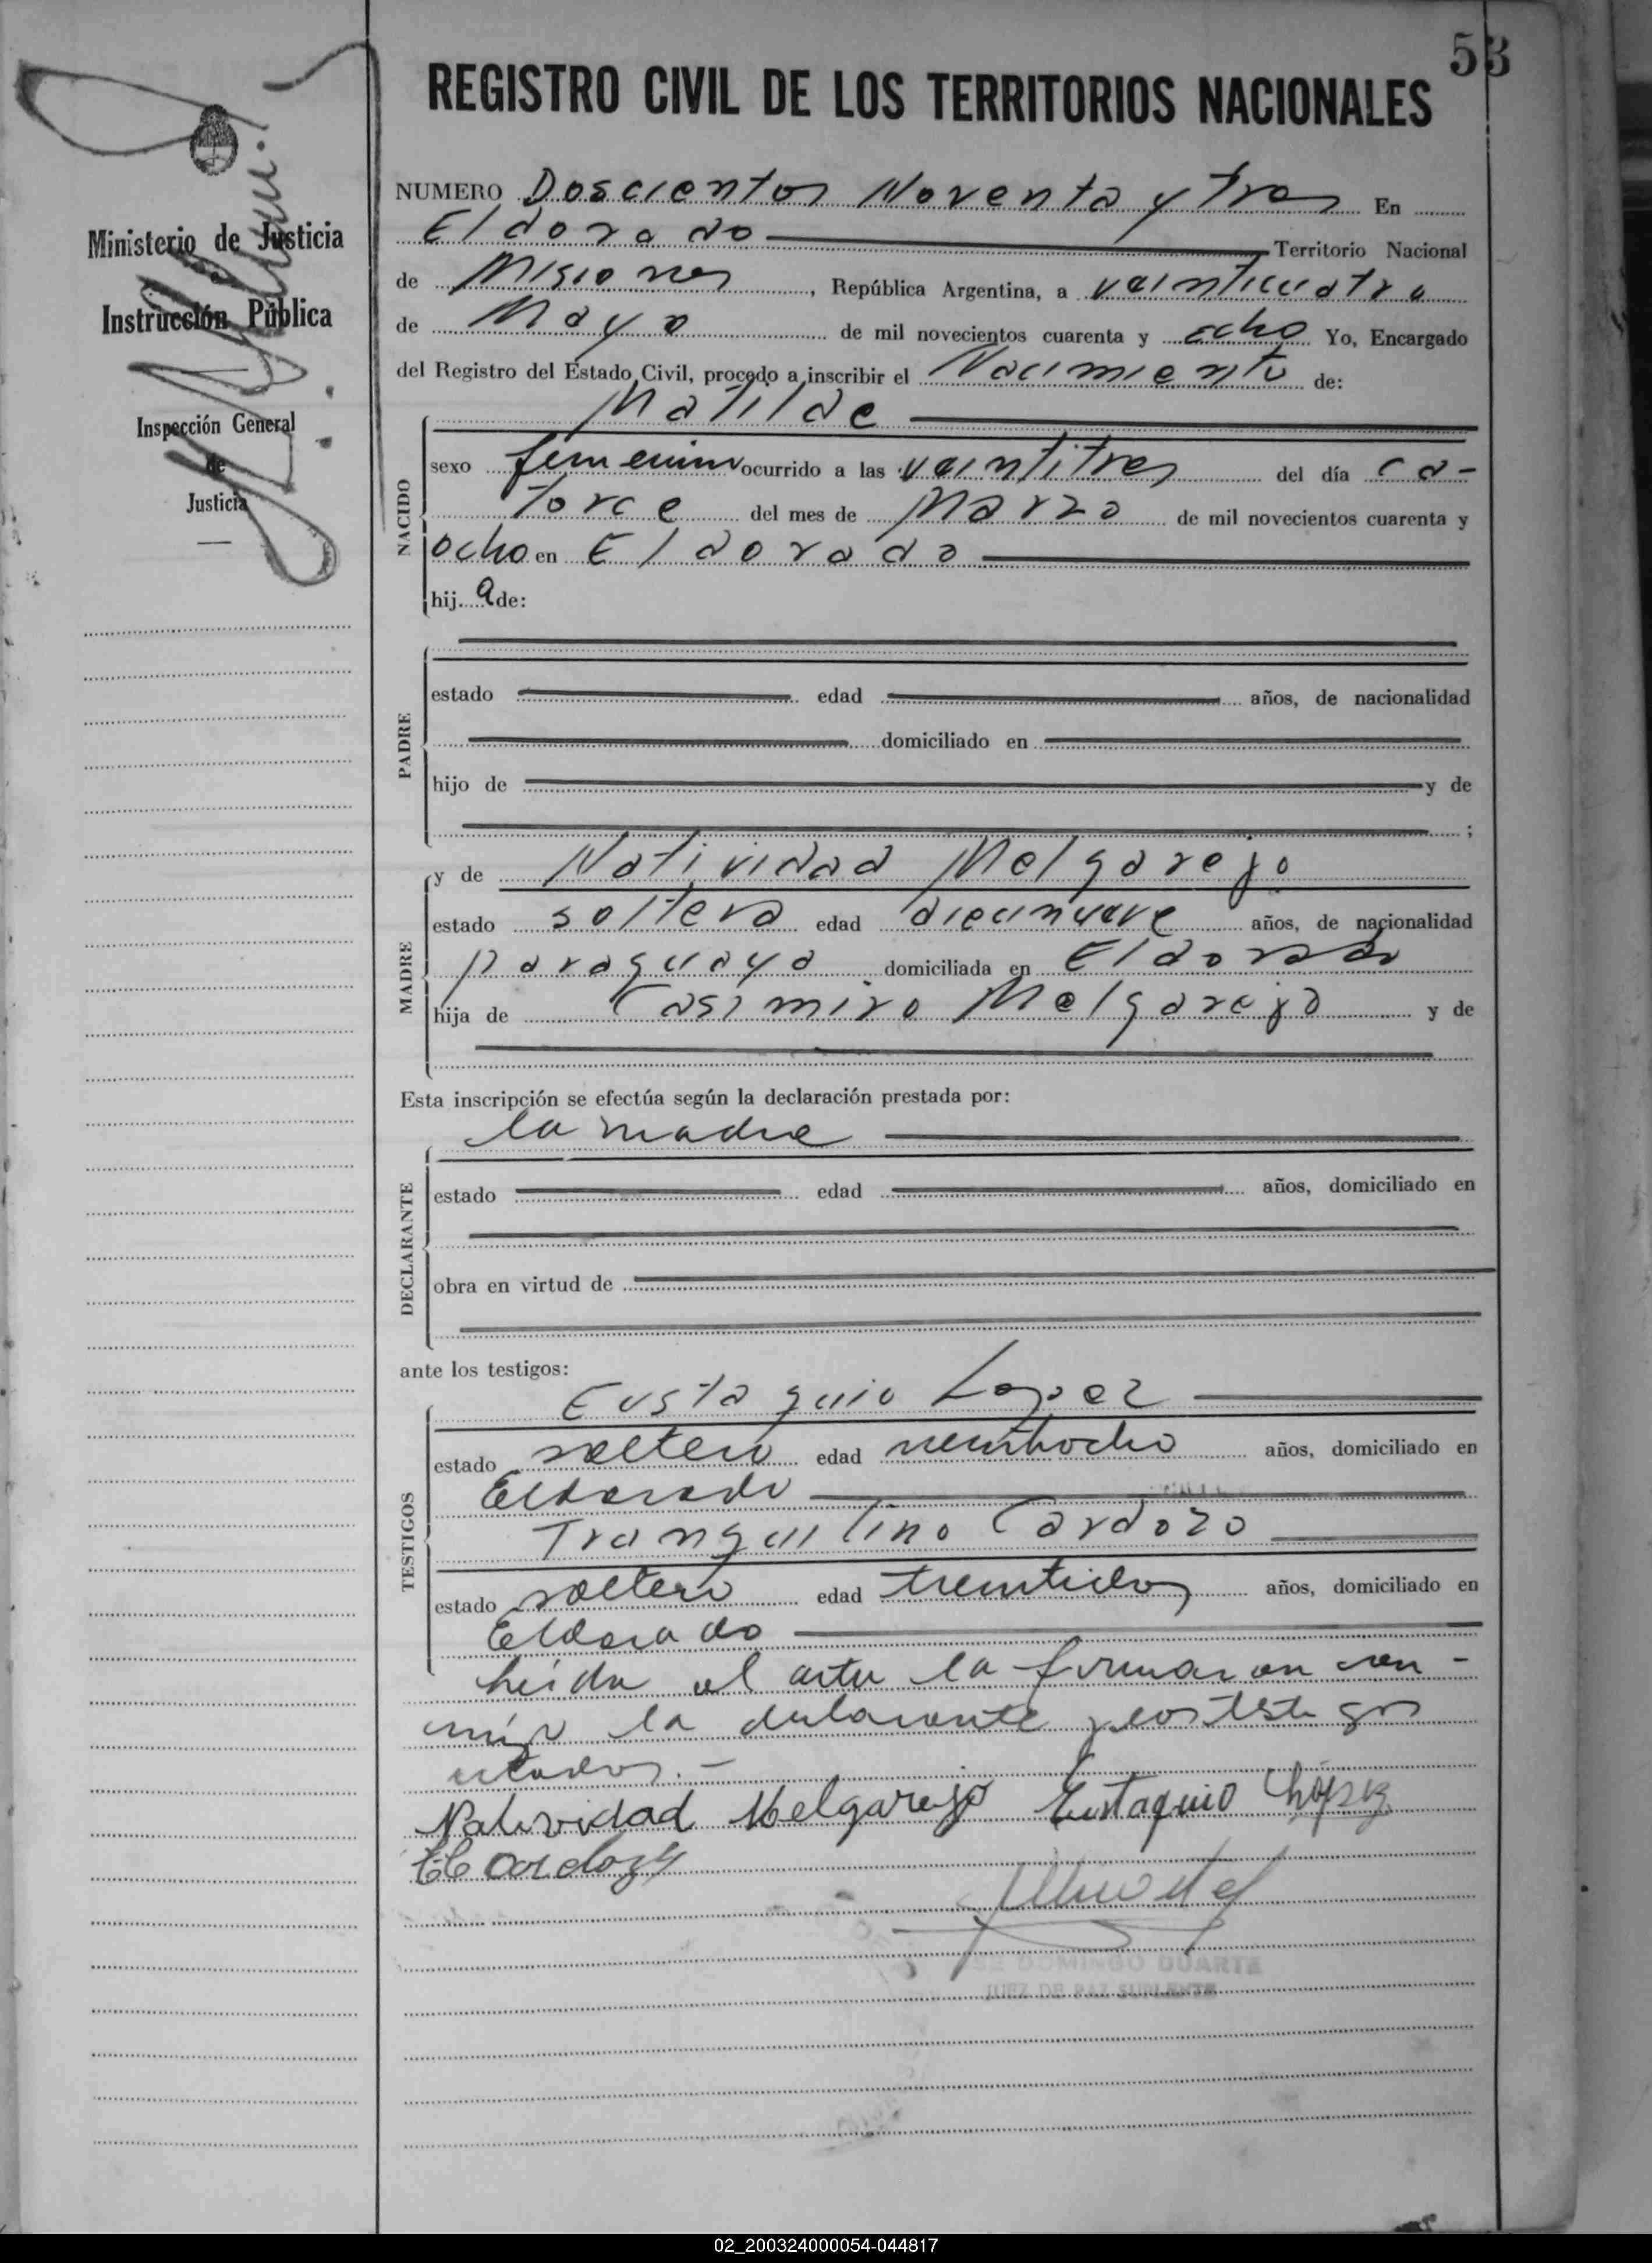 53
REGISTRO CIVIL DE LOS TERRITORIOS NACIONALES
Ministerio de Justicia
e
Instrucción Pública
Inspección General
de
Justicia
NUMERO Doscientos Noventa y tres En
Eldorado Territorio Nacional
de Misiones, República Argentina, a veinticuatro
de Mayo de mil novecientos cuarenta y ocho Yo, Encargado
del Registro del Estado Civil, procedo a inscribir el Nacimiento de:
Matilde
NACIDO
sexo femenino ocurrido a las veintitres del día ca-
torce del mes de Marzo de mil novecientos cuarenta y
ocho en Eldorado
hij a de:
PADRE
estado edad años, de nacionalidad
domiciliado en
hijo de y de
;
MADRE
y de Natividad Melgarejo
estado soltera edad diecinueve años, de nacionalidad
paraguaya domiciliada en Eldorado
hija de Casimiro Melgarejo y de
Esta inscripción se efectúa según la declaración prestada por:
la madre
DECLARANTE
estado edad años, domiciliado en
obra en virtud de
ante los testigos:
TESTIGOS
Eustaquio Lopez
estado soltero edad veintiocho años, domiciliado en
Eldorado
Tranquilino Cardozo
estado soltero edad treintidos años, domiciliado en
Eldorado
Leida el acta la firmaron con-
migo la declarante y los testigos
citados.-
Natividad Melgarejo Eustaquio López
Cardozo
JOSE DOMINGO DUARTE
JUEZ DE PAZ SUPLENTE
02_200324000054-044817